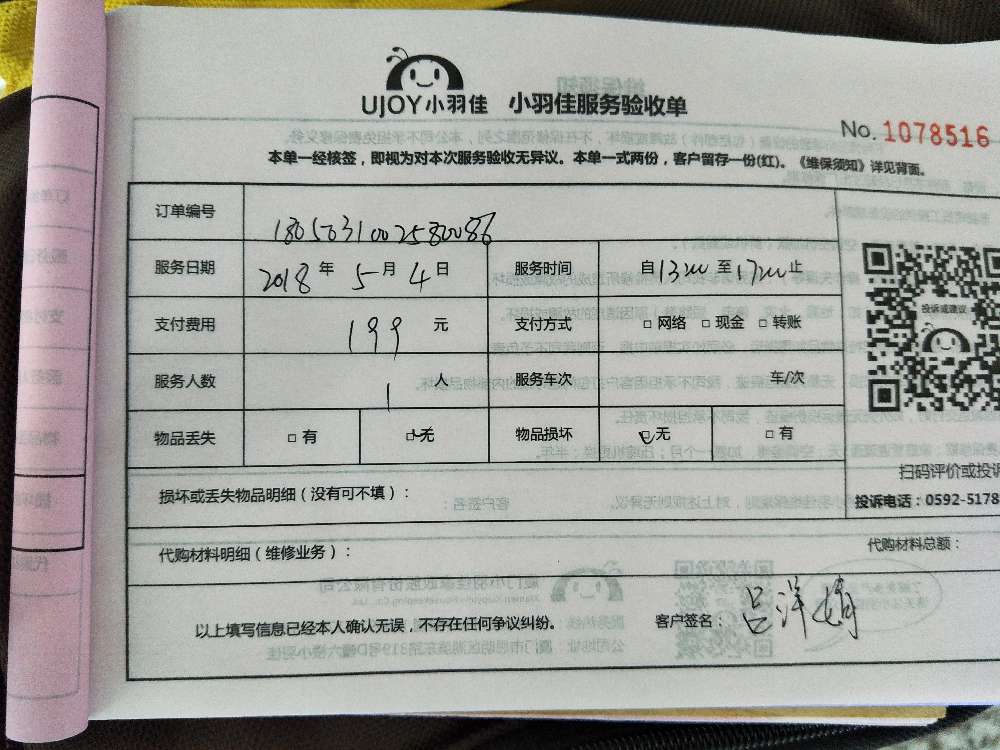 UJOY小羽佳 小羽佳服务验收单
No. 1078516
本单一经核签，即视为对本次服务验收无异议。本单一式两份，客户留存一份(红)。《维保须知》详见背面。
订单编号
服务日期 2018 年 5 月 4 日 服务时间 自 13:00 至 17:00 止
支付费用 199 元 支付方式 □ 网络 □ 现金 □ 转账
投诉或建议
服务人数 1 人 服务车次 车/次
物品丢失 □ 有 □ 无 物品损坏 □ 无 □ 有
扫码评价或投诉
损坏或丢失物品明细（没有可不填）：
投诉电话：0592-5178
代购材料明细（维修业务）：
代购材料总额：
以上填写信息已经本人确认无误，不存在任何争议纠纷。 客户签名：